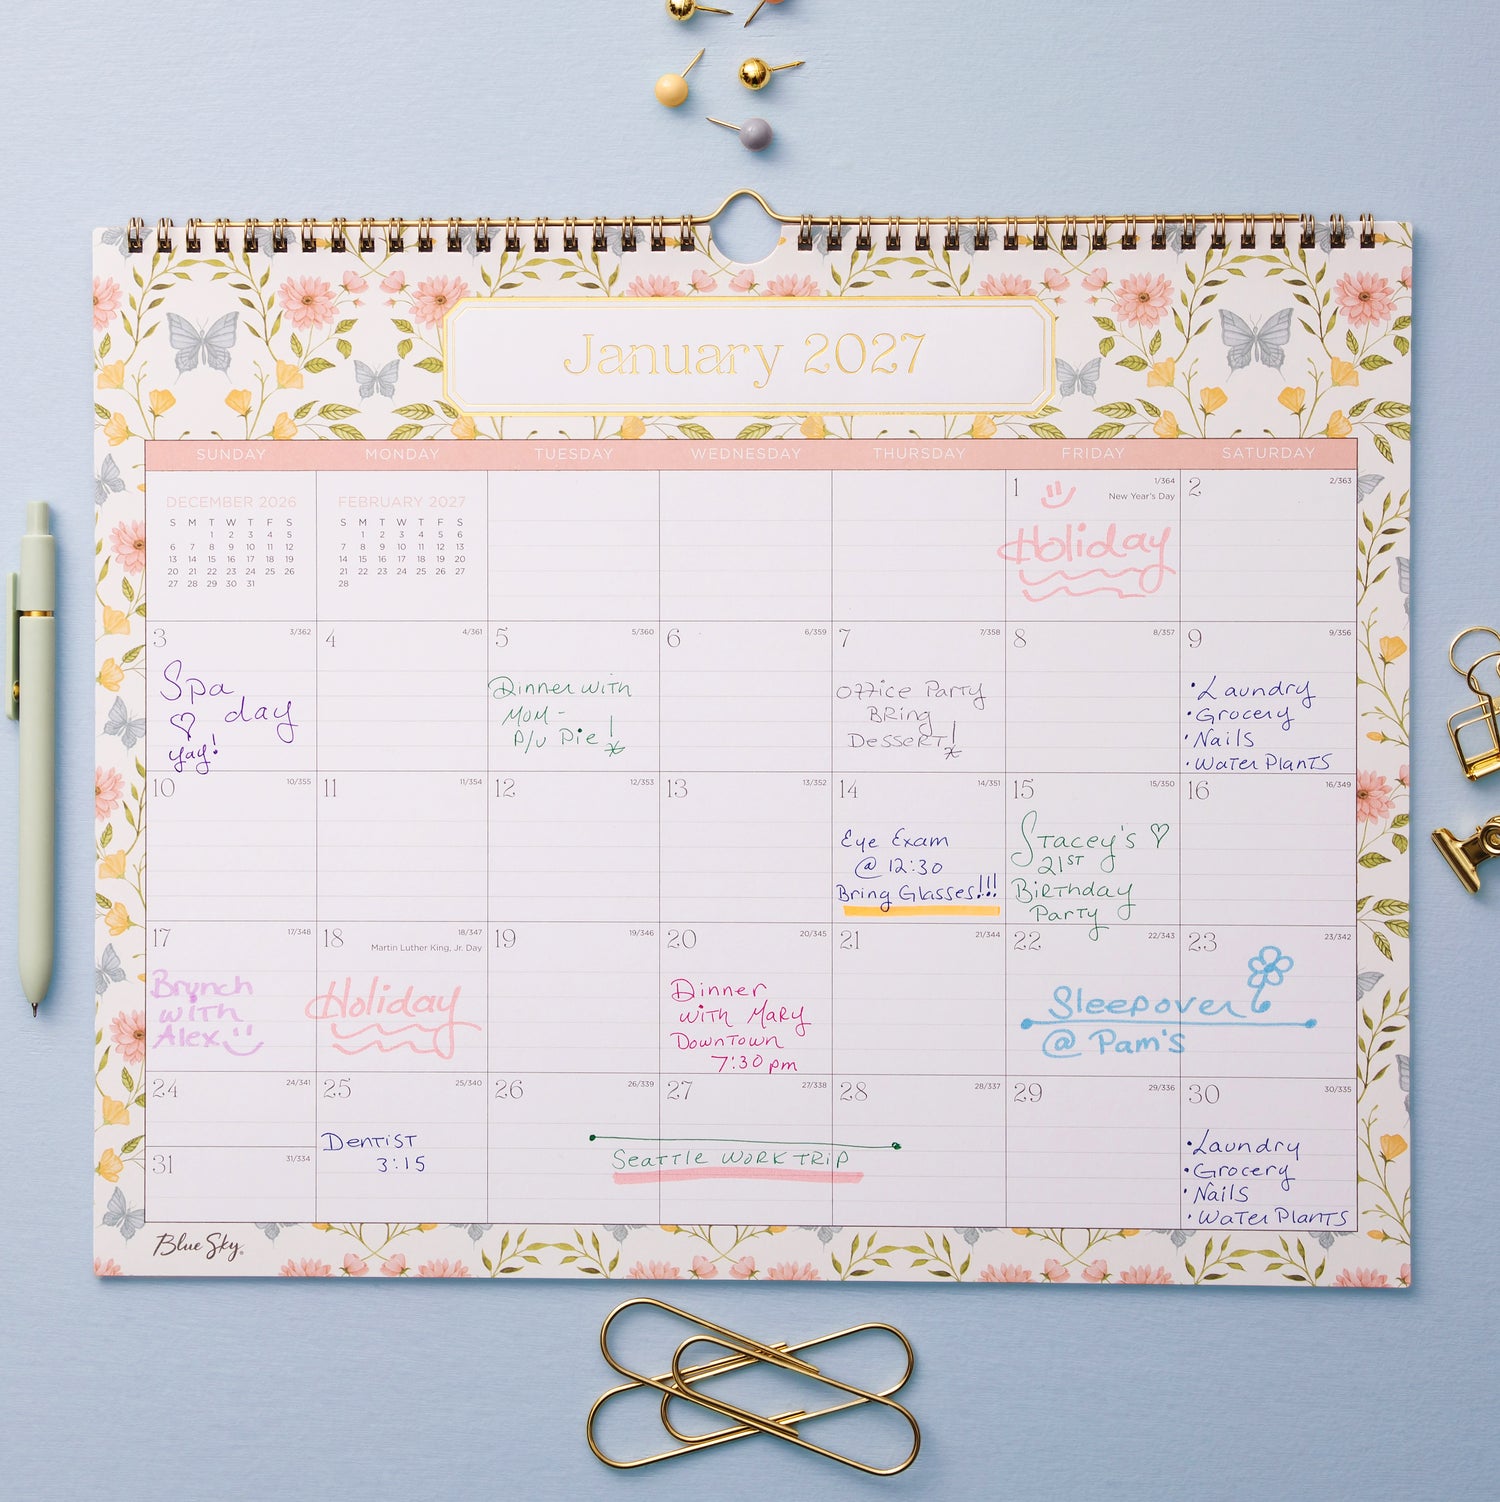 January 2027
SUNDAY MONDAY TUESDAY WEDNESDAY THURSDAY FRIDAY SATURDAY
DECEMBER 2026
S M T W T F S
1 2 3 4 5
6 7 8 9 10 11 12
13 14 15 16 17 18 19
20 21 22 23 24 25 26
27 28 29 30 31
FEBRUARY 2027
S M T W T F S
1 2 3 4 5 6
7 8 9 10 11 12 13
14 15 16 17 18 19 20
21 22 23 24 25 26 27
28
1 1/364
New Year's Day
Holiday
2 2/363
3 3/362
Spa
day
yay!
4 4/361
5 5/360
Dinner with
Mom -
P/U Pie!
6 6/359
7 7/358
Office Party
Bring
Dessert!
8 8/357
9 9/356
• Laundry
• Grocery
• Nails
• Water Plants
10 10/355
11 11/354
12 12/353
13 13/352
14 14/351
Eye Exam
@ 12:30
Bring Glasses!!!
15 15/350
Stacey's
21st
Birthday
Party
16 16/349
17 17/348
Brunch
with
Alex
18 18/347
Martin Luther King, Jr. Day
Holiday
19 19/346
20 20/345
Dinner
with Mary
Downtown
7:30 pm
21 21/344
22 22/343
23 23/342
Sleepover
@ Pam's
24 24/341
31 31/334
25 25/340
Dentist
3:15
26 26/339
27 27/338
28 28/337
Seattle Work Trip
29 29/336
30 30/335
• Laundry
• Grocery
• Nails
• Water Plants
Blue Sky